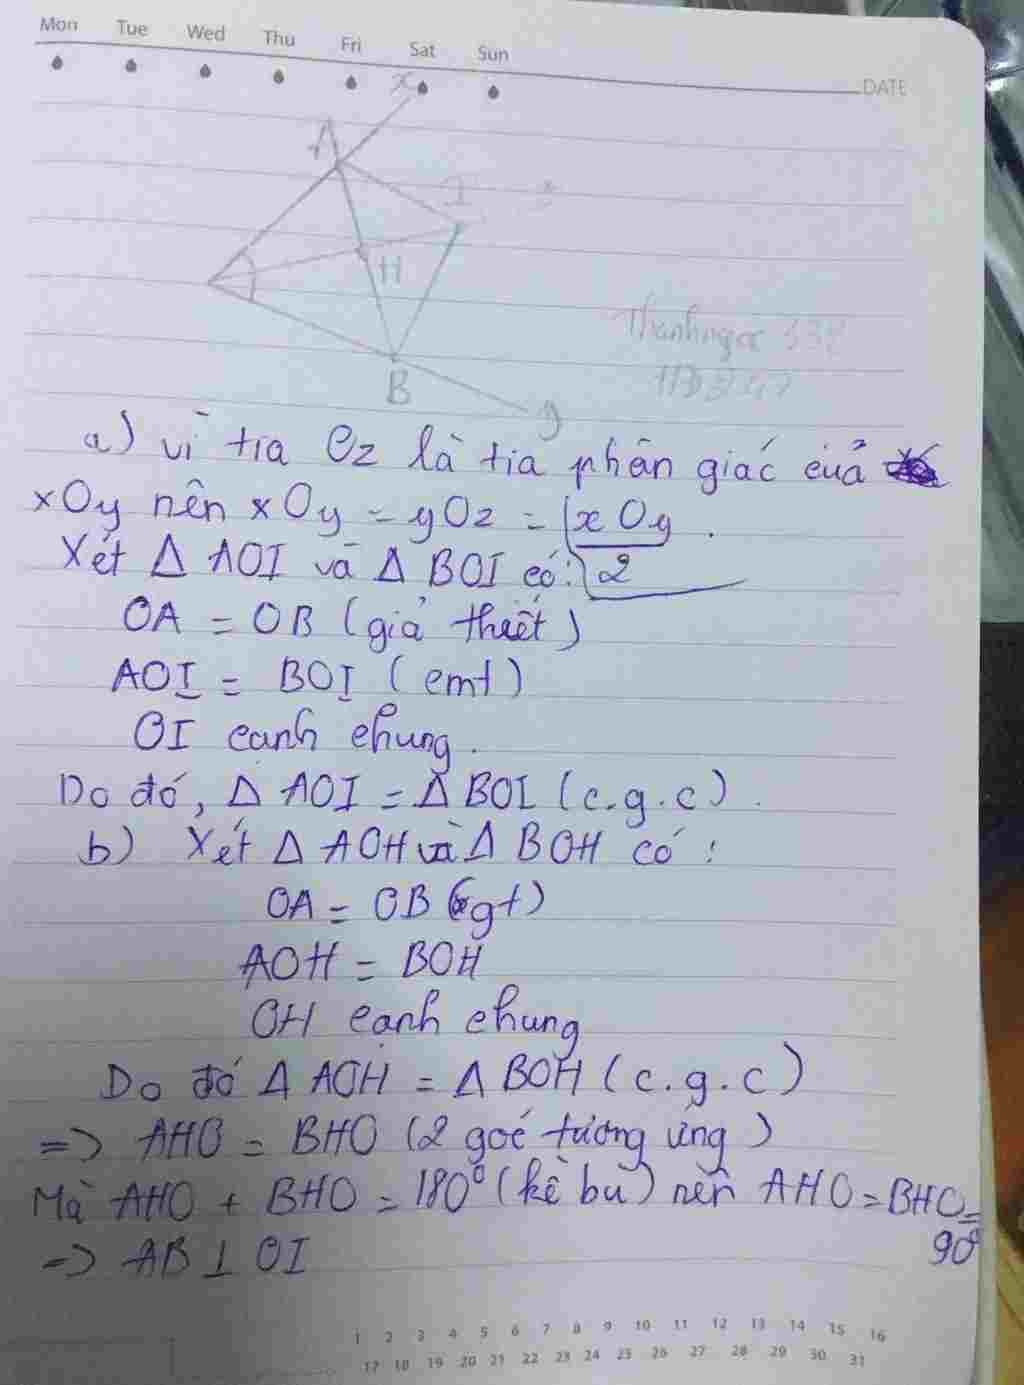 Mon Tue Wed Thu Fri Sat Sun
DATE
x
A
I
z
H
B
y
Thanhngoc
a) vì tia Oz là tia phân giác của
xOy nên xOy = yOz = xOy .
Xét Δ AOI và Δ BOI có: 2
OA = OB (giả thiết)
AOI = BOI (cmt)
OI cạnh chung.
Do đó, Δ AOI = Δ BOI (c.g.c).
b) Xét Δ AOH và Δ BOH có:
OA = OB (gt)
AOH = BOH
OH cạnh chung
Do đó Δ AOH = Δ BOH (c.g.c)
=> AHO = BHO (2 góc tương ứng)
Mà AHO + BHO = 180° (kề bù) nên AHO = BHO =
90°
=> AB ⊥ OI
1 2 3 4 5 6 7 8 9 10 11 12 13 14 15 16
17 18 19 20 21 22 23 24 25 26 27 28 29 30 31